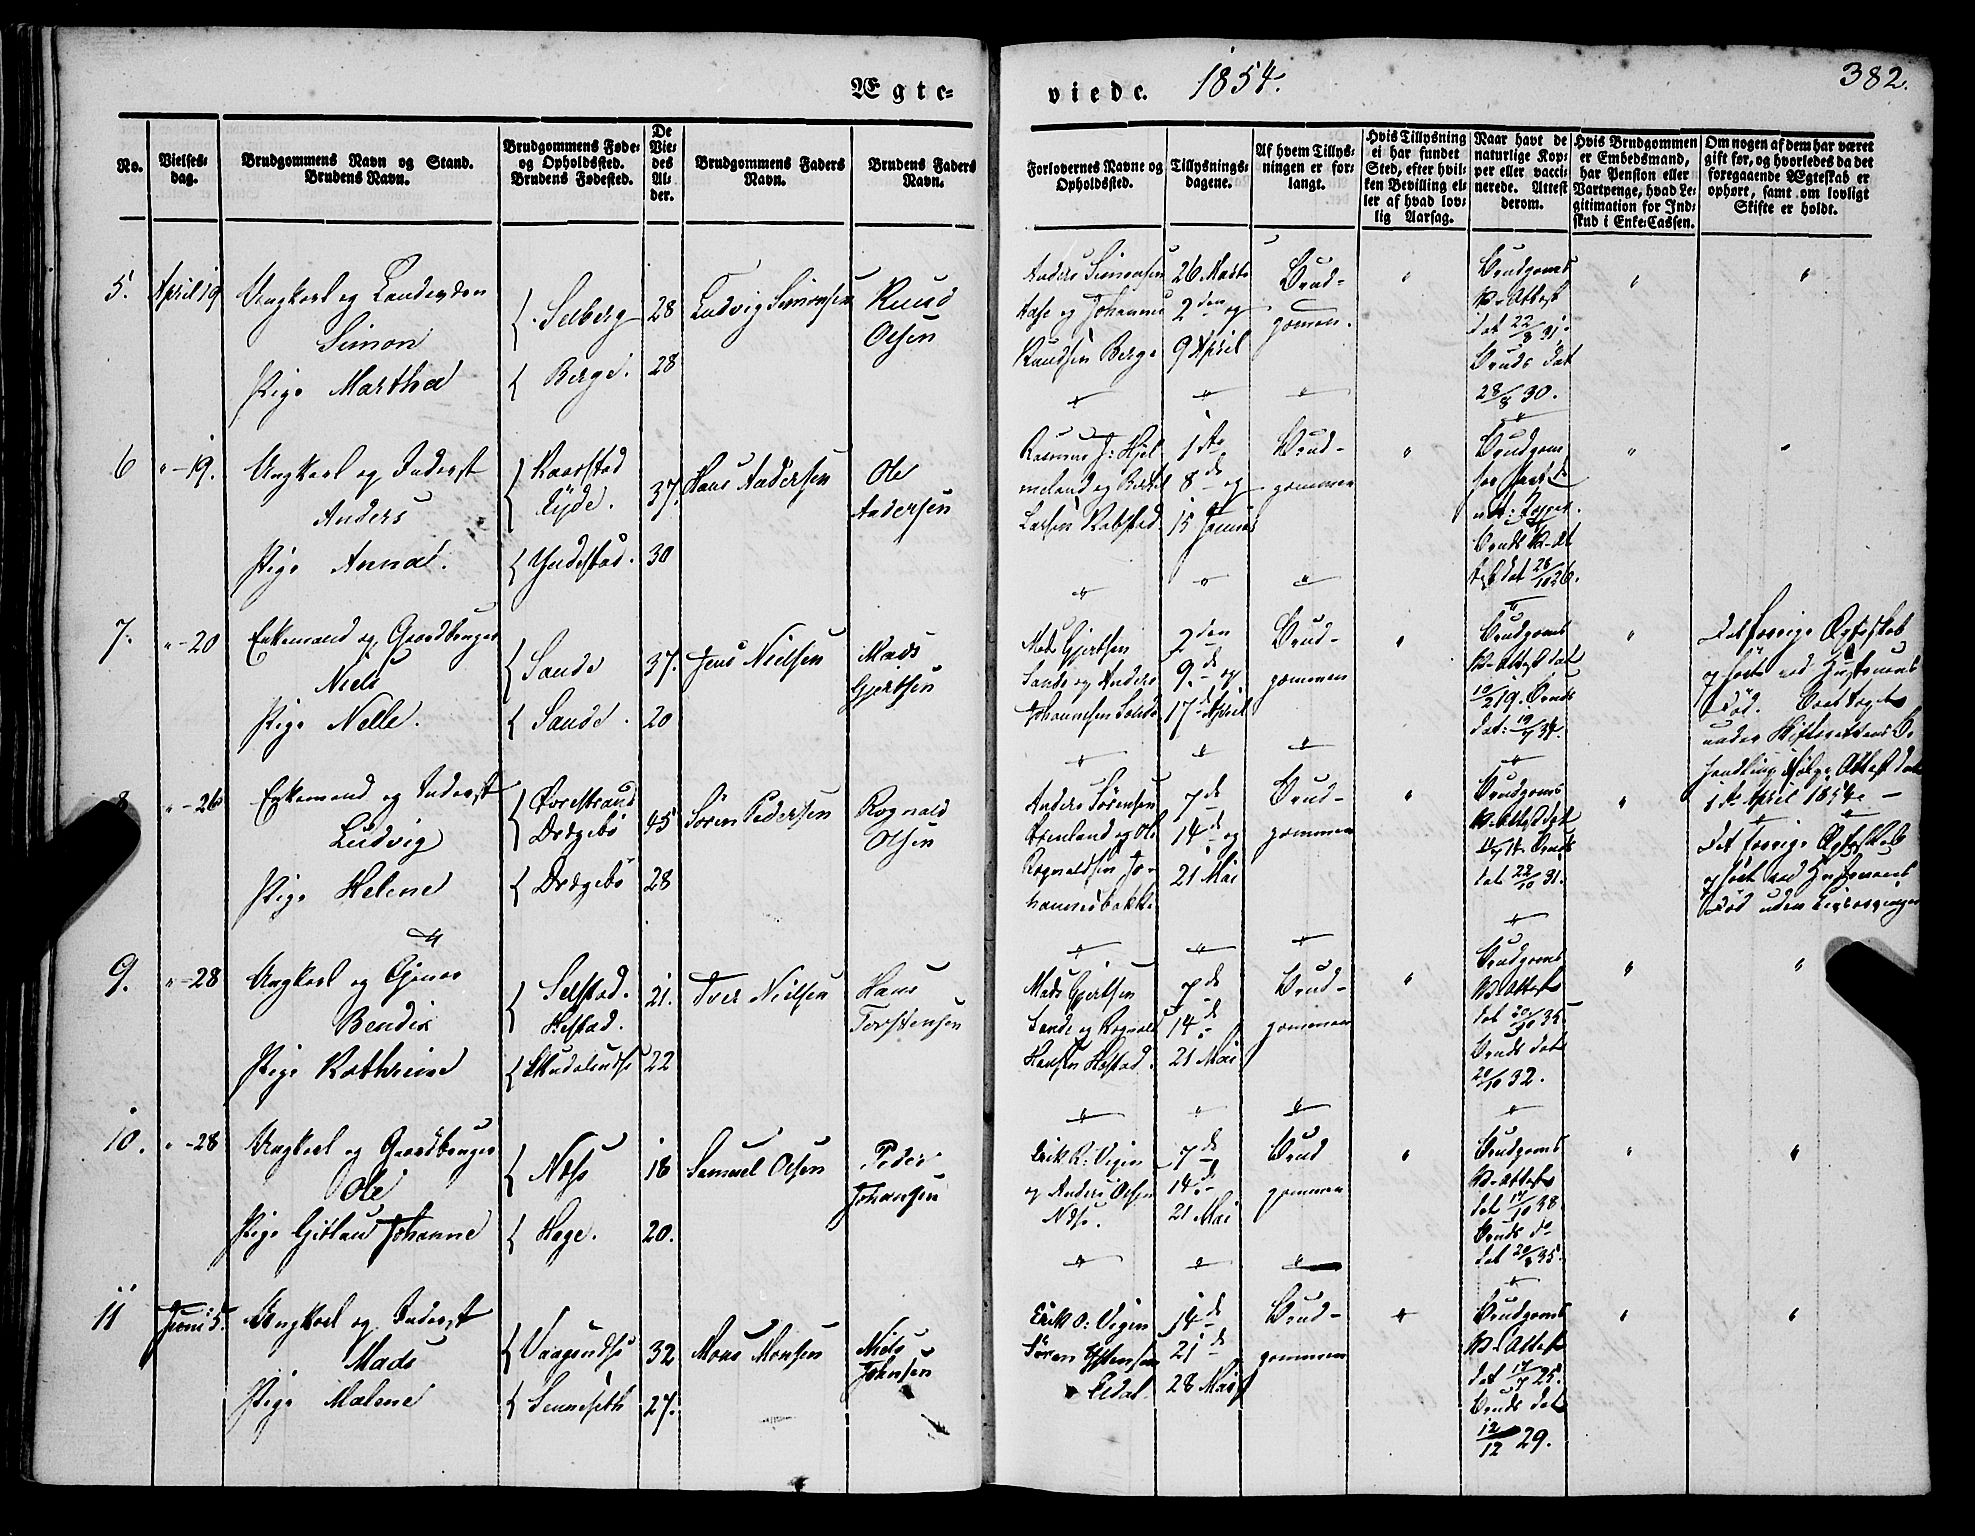 Ægte-
viede. 1854.
382.
No.
Vielses-
dag.
Brudgommens Navn og Stand.
Brudens Navn.
Brudgommens Føde-
og Opholdssted.
Brudens Fødested.
De
Vie-
des
Al-
der.
Brudgommens Faders
Navn.
Brudens Faders
Navn.
Forlovernes Navne og
Opholdssted.
Tillysnings-
dagene.
Af hvem Tillys-
ningen er for-
langt.
Hvis Tillysning
ei har fundet
Sted, efter hvil-
ken Bevilling el-
ler af hvad lov-
lig Aarsag.
Naar havt de
naturlige Kop-
per eller vacci-
nerede. Attest
derom.
Hvis Brudgommen
er Embedsmand,
har Pension eller
Vartpenge, hvad Le-
gitimation for Ind-
skud i Enke-Cassen.
Om nogen af dem har været
gift før, og hvorledes da det
foregaaende Ægteskab er
ophørt, samt om lovligt
Skifte er holdt.
5. April 19 Ungkarl og
Simon
Pige Martha
Selberg
Berge.
28
28
Ludvig Simonsen
Knud
Olsen
Anders Simonsen
og Johannes
Knudsen Berge
26. Marts
2den og
9 April
Brud-
gommen.
Brudgoms
V-Attest
dat 22/8 31.
Bruds dat
28/8 30.
6 " 19. Ungkarl og Inderst
Anders
Pige Anna.
Yndestad.
37.
30
Hans Andersen
Ole
Andersen
Larsen
8de og
Brud-
gommen
Brudgom
Bruds V-At
test dat 28/10 26.
7. " 20 Enkemand og Gaardbruger
Niels
Pige Nelle.
Sande
Sande.
37.
20
Jens Nielsen
Mads
Gjertsen
Mads Gjertsen
Sande og Anders
Johannesen Sande
2den
9de og
17de April
Brud-
gommen
Brudgoms
V-Attest dat
Bruds
dat:
Det forrige Ægteskab
ophört ved Hustruens
Död.
under Skifterettens Be-
handling ifölge Attest dat
1ste April 1854.
8 " 26 Enkemand og Inderst
Ludvig
Pige Helene
Övrestrand
Drægebö
Drægebö
45
28
Sören Pedersen
Rognald
Olsen
Anders Sörensen
og Ole
Rognaldsen Jo-
hannesbakke
7de
14de og
21 Mai
Brud-
gommen
Brudgoms
V-Attest dat
Bruds
dat 22/10 31.
Det forrige Ægteskab
ophört ved Hustruens
Död uden Livsarvinger
9. " 28 Ungkarl og
Bendix
Pige Kathrine
Selstad.
Hestad.
21.
22
Iver Nielsen
Hans
Torstensen
Mads Gjertsen
Sande og Rognald
Hansen Hestad.
7de
14de
21 Mai
Brud-
gommen
Brudgoms
V-Attest
dat 20/10 35.
Bruds dat
20/10 32.
10. " 28 Ungkarl og Gaardbruger
Ole
Pige Johanne
Næs
Hage.
18
20.
Samuel Olsen
Peder
Johansen
Erik R: Vigen
og Anders Olsen
Næs.
7de
14de
21 Mai
Brud
gommen
Brudgoms
V-Attest
dat 17/10 38
Bruds do
dat 20/8 35.
11 Juni 5. Ungkarl og Inderst
Mads
Pige Malene
Sennesæth
32
27.
Mons Monsen
Niels
Johnsen
Erik O: Vigen
Sören
Eldal.
14de
21de
28 Mai
Brud-
gommen
Brudgoms
V-Attest
dat 17/7 25.
Bruds dat
12/12 29.